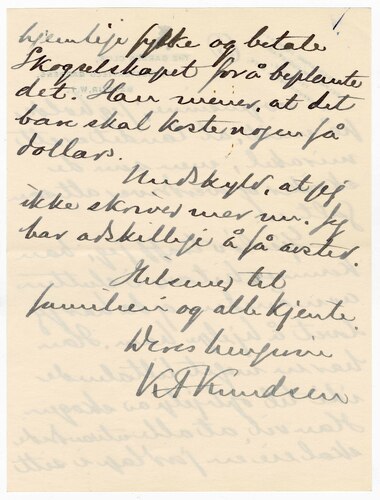 hjemlige fylke og betale
Skogselskapet for å beplante
det. Han mener, at det
bare skal koste nogen få
dollars.
Undskyld, at jeg
ikke skriver mer nu. Jeg
har adskillige å få avsted.
Hilsener til
familien og alle kjente.
Deres hengivne
K A Knudsen